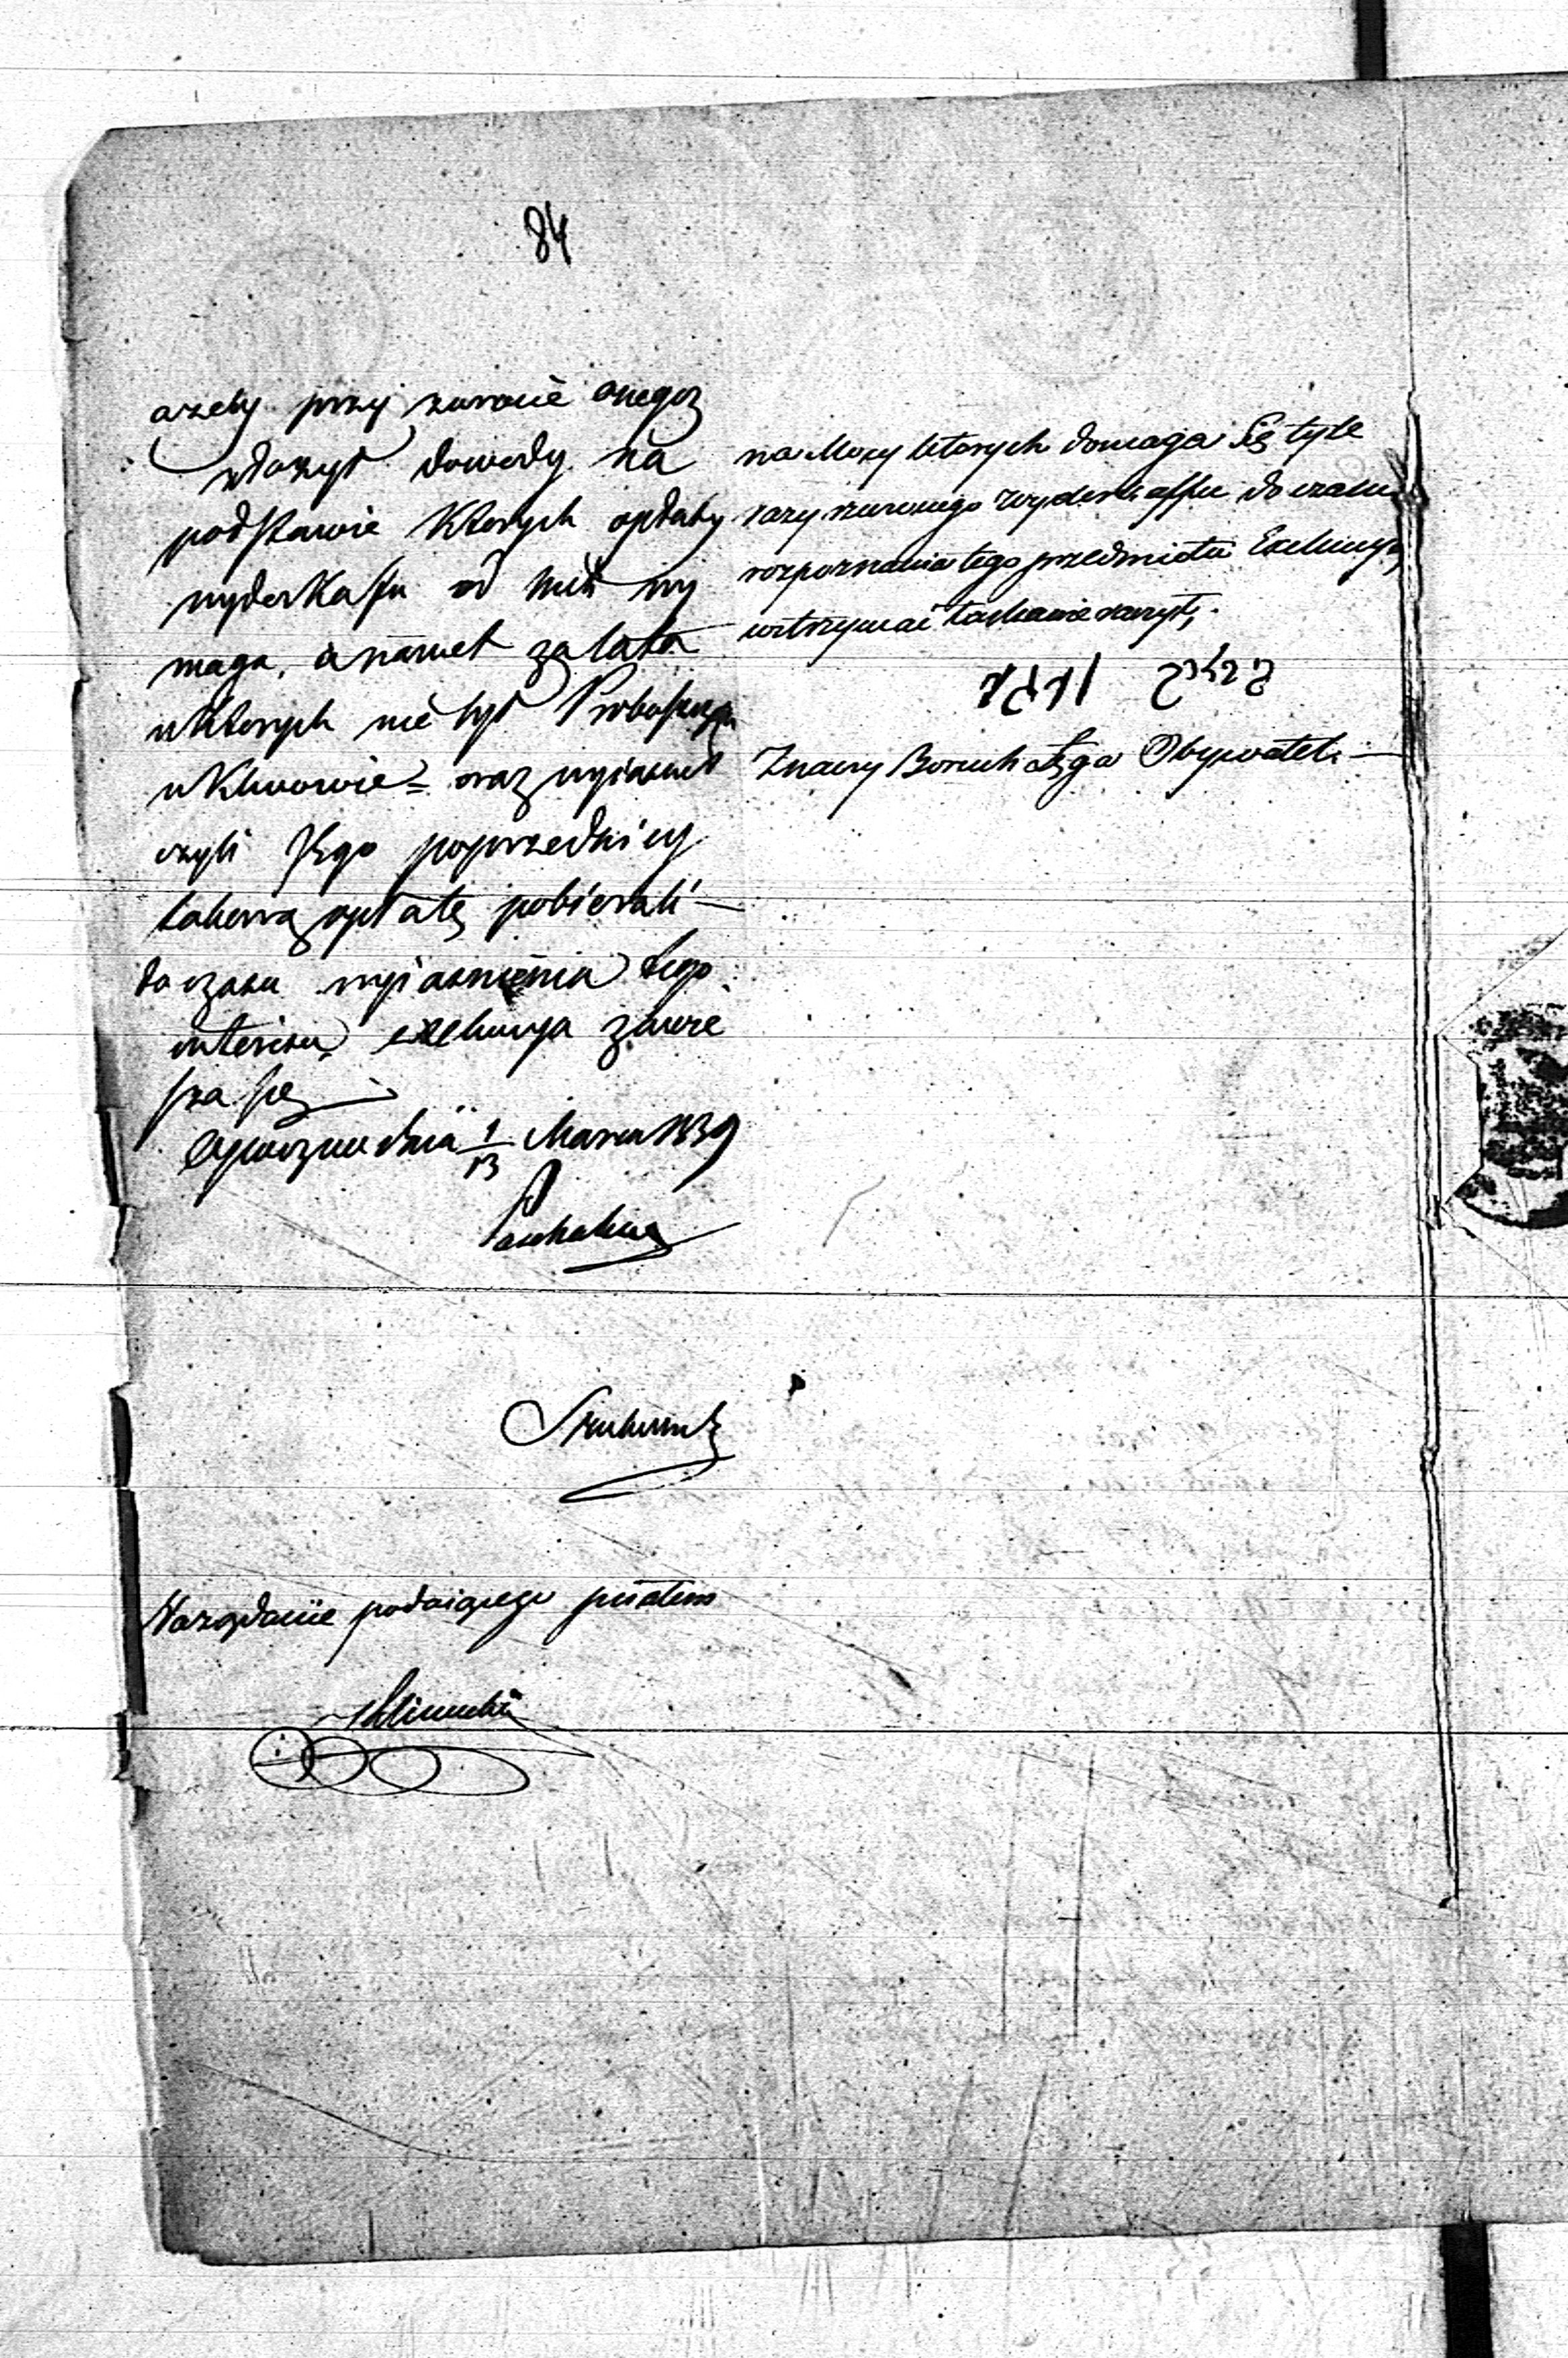 84
azeby przy zwrocie onegoz
złozył dowody na
podstawie których opłaty
wyderkaffu od nich wy
maga, a nawet za lata
w których nie był Proboszczem
w Klwowie = oraz wyiasnił
czyli Jego poprzednicy
takową opłatę pobierali —
do czasu wyiasnienia tego
interesu, exekucya zawie
sza się —
Opoczno dnia 1/13 Marca 1839
na Mocy których domaga Się tyle
razy rzeczonego wyderkaffu do czasu
rozpoznania tego przedmiotu Exekucyę
wstrzymać łaskawie raczył,
Znaczy Boruch Łęga Obywatel —
Na ządanie podaiącego pisałem